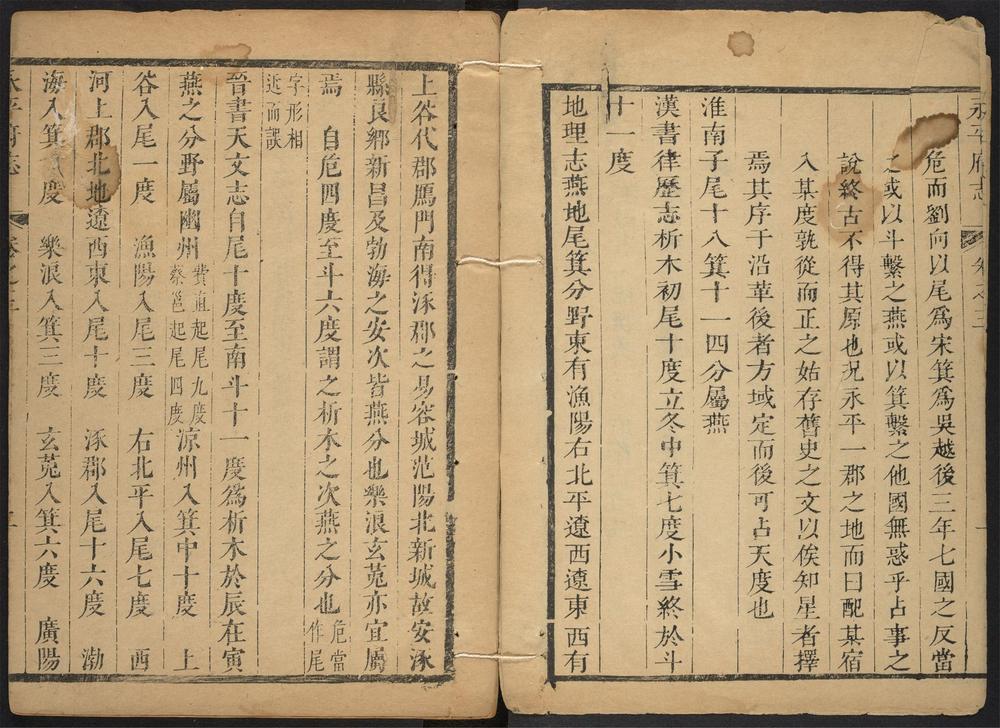 永平府志 卷之三 一
危而劉向以尾爲宋箕爲吳越後三年七國之反當
之或以斗繫之燕或以箕繫之他國無惑乎占事之
說終古不得其原也况永平一郡之地而曰配某宿
入某度孰從而正之姑存舊史之文以俟知星者擇
焉其序于沿革後者方域定而後可占天度也
淮南子尾十八箕十一四分屬燕
漢書律歷志析木初尾十度立冬中箕七度小雪終於斗
十一度
地理志燕地尾箕分野東有漁陽右北平遼西遼東西有
上谷代郡鴈門南得涿郡之易容城范陽北新城故安涿
縣良鄉新昌及勃海之安次皆燕分也樂浪玄菟亦宜屬
焉 自危四度至斗六度謂之析木之次燕之分也 危當作尾
字形相近而誤
晉書天文志自尾十度至南斗十一度爲析木於辰在寅
燕之分野屬幽州 費直起尾九度蔡邕起尾四度 涼州入箕中十度 上
谷入尾一度 漁陽入尾三度 右北平入尾七度 西
河上郡北地遼西東入尾十度 涿郡入尾十六度 渤
海入箕一度 樂浪入箕三度 玄菟入箕六度 廣陽
永平府志 卷之三